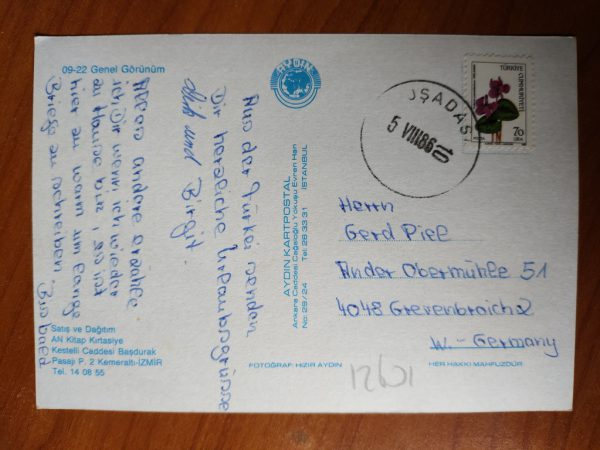 09-22 Genel Görünüm
AYDIN
Aus der Türkei senden
Dir herzliche Urlaubsgrüsse
und Birgit.
Alles andere erzähle
ich Dir wenn ich wieder
zu Hause bin, es ist
hier zu warm um lange
Briefe zu schreiben Bis bald
Satış ve Dağıtım
AN Kitap Kırtasiye
Kestelli Caddesi Başdurak
Pasajı P. 2 Kemeraltı-İZMİR
Tel. 14 08 55
AYDIN KARTPOSTAL
Ankara Caddesi Cağaloğlu Yokuşu Evren Han
No: 29/24 Tel: 28 33 31 İSTANBUL
FOTOĞRAF: HIZIR AYDIN
HER HAKKI MAHFUZDUR.
UŞADAS
5 VIII86 10
TÜRKİYE
CUMHURİYETİ
70
LİRA
Herrn
Gerd Piel
An der Obermühle 51
4048 Grevenbroich 2
W.- Germany